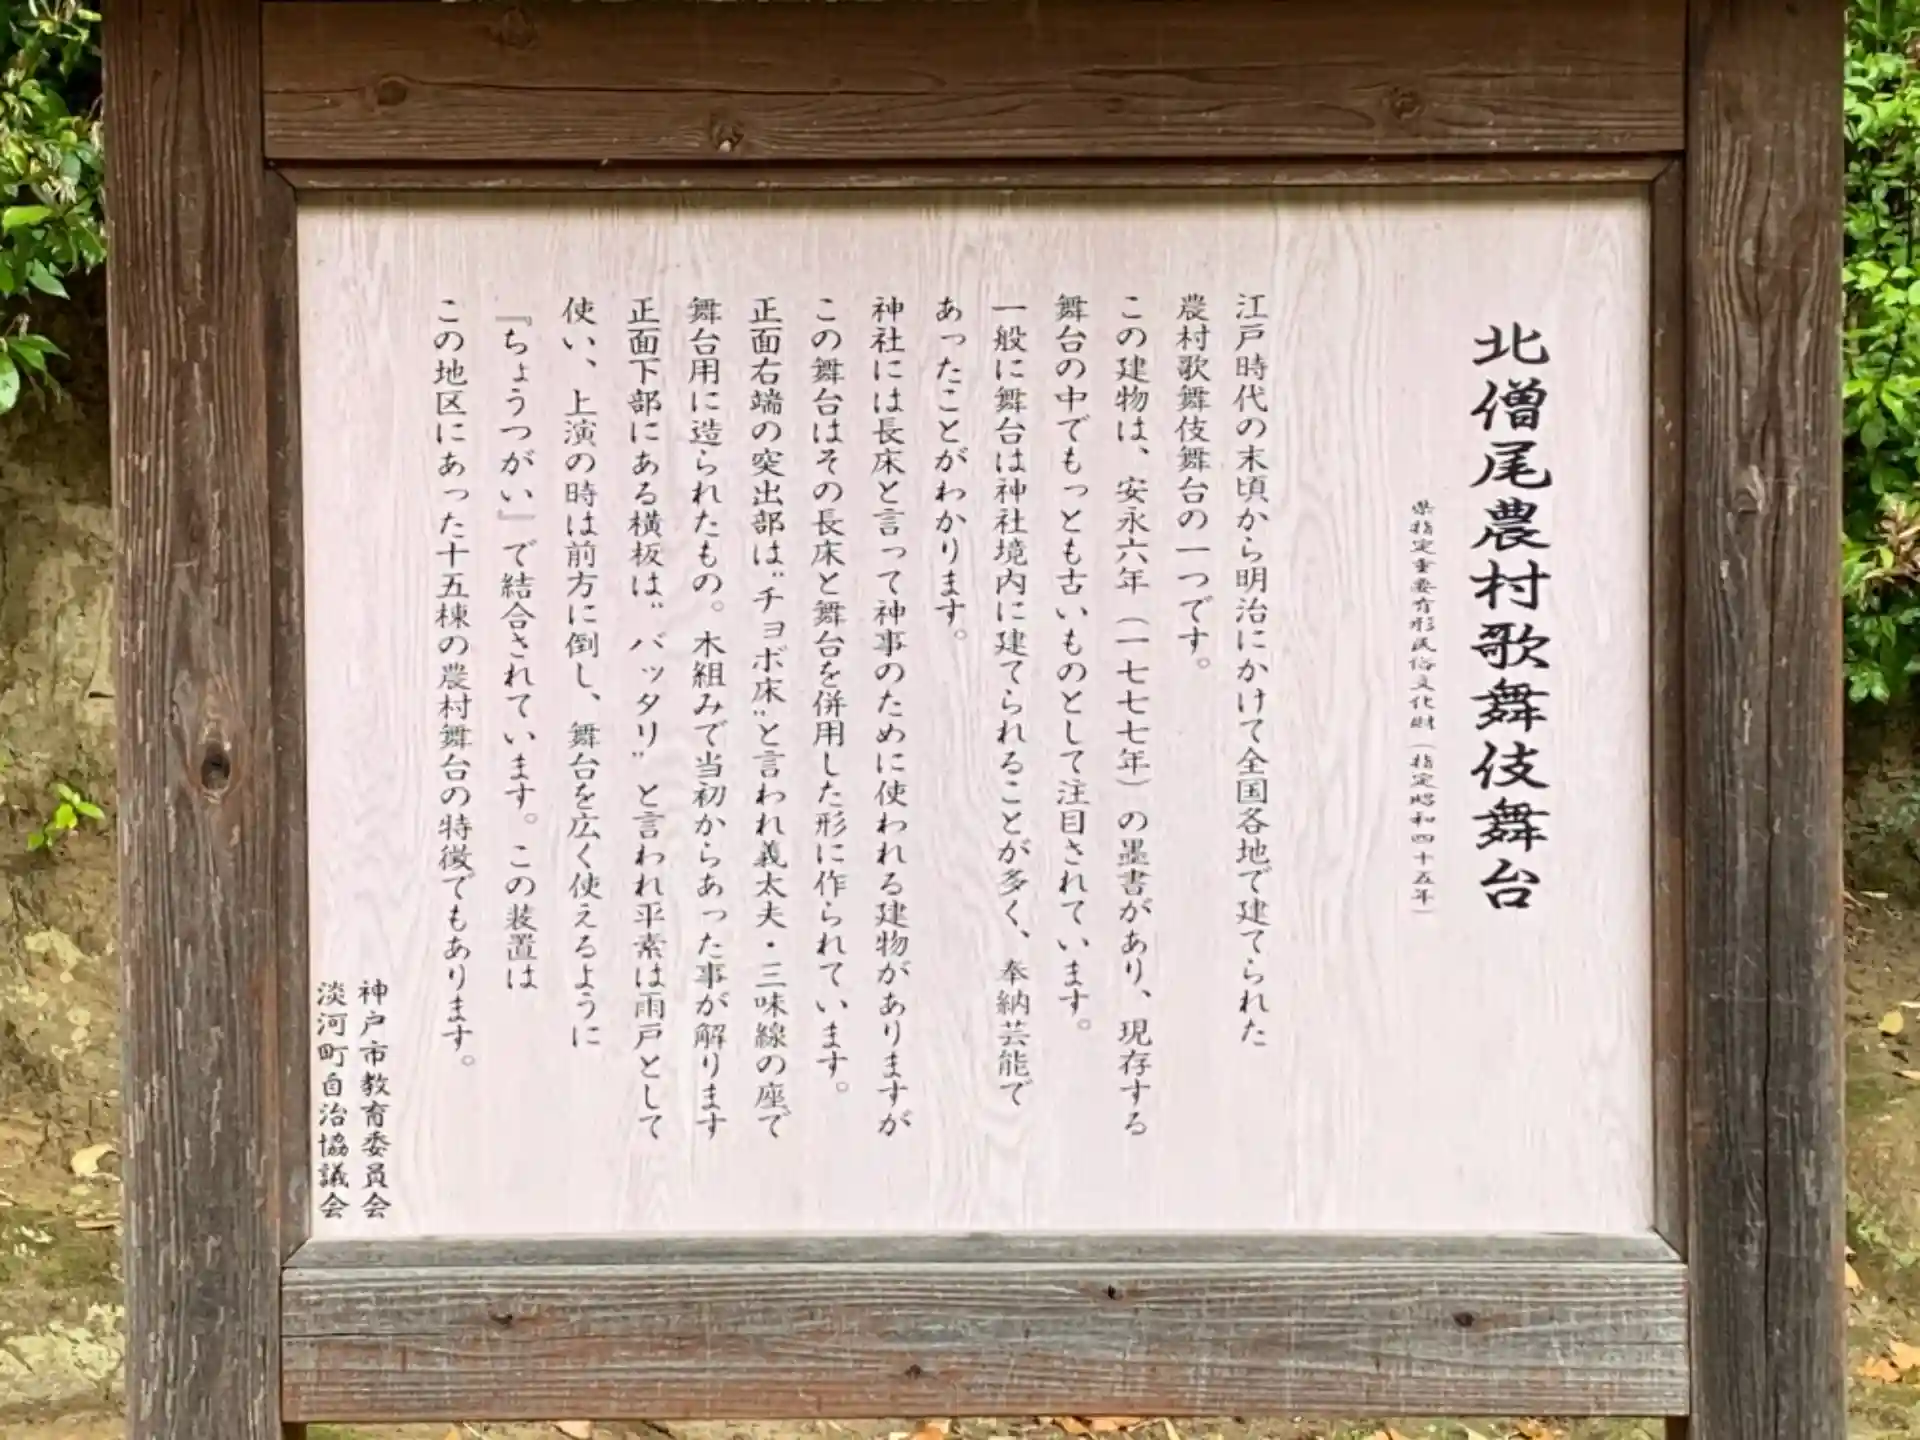 北僧尾農村歌舞伎舞台
県指定重要有形民俗文化財（指定昭和四十五年）
江戸時代の末頃から明治にかけて全国各地で建てられた
農村歌舞伎舞台の一つです。
この建物は、安永六年（一七七七年）の墨書があり、現存する
舞台の中でもっとも古いものとして注目されています。
一般に舞台は神社境内に建てられることが多く、奉納芸能で
あったことがわかります。
神社には長床と言って神事のために使われる建物がありますが
この舞台はその長床と舞台を併用した形に作られています。
正面右端の突出部は〝チョボ床〟と言われ義太夫・三味線の座で
舞台用に造られたもの。木組みで当初からあった事が解ります
正面下部にある横板は〝バッタリ〟と言われ平素は雨戸として
使い、上演の時は前方に倒し、舞台を広く使えるように
『ちょうつがい』で結合されています。この装置は
この地区にあった十五棟の農村舞台の特徴でもあります。
神戸市教育委員会
淡河町自治協議会